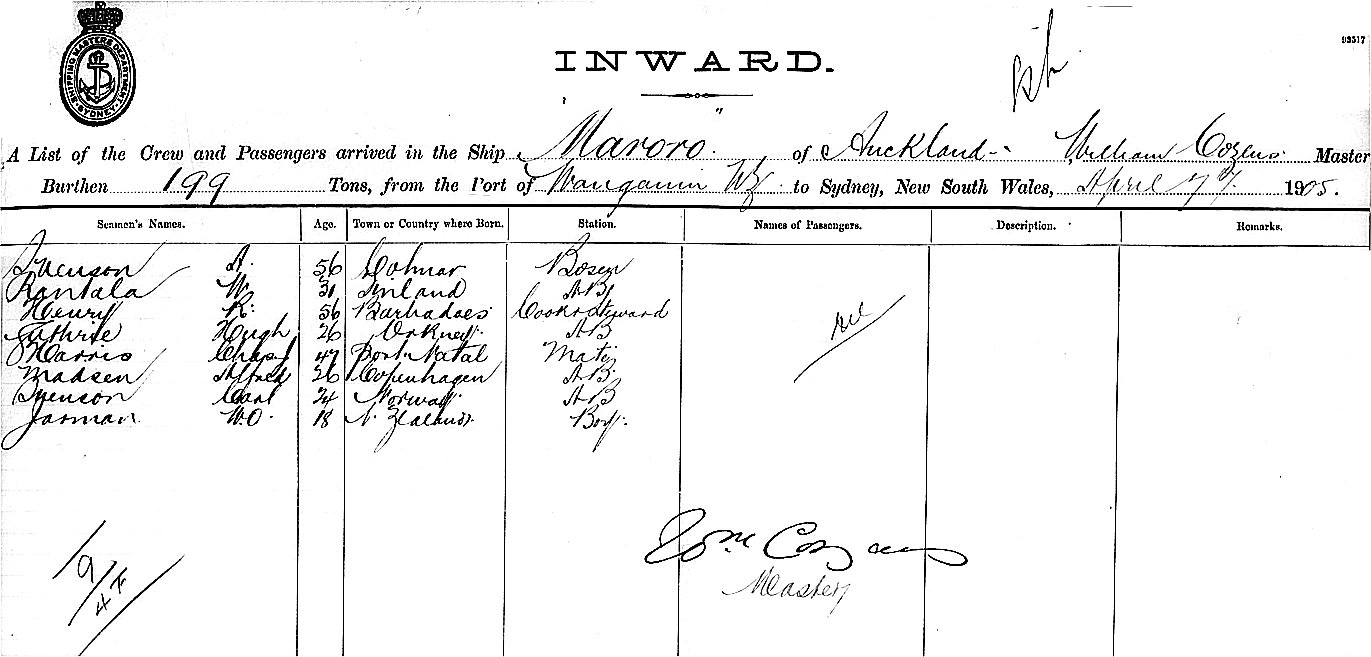 SHIPPING MASTERS DEPARTMENT SYDNEY
93517
INWARD.
A List of the Crew and Passengers arrived in the Ship "Maroro" of Auckland William Cozens Master
Burthen 199 Tons, from the Port of to Sydney, New South Wales, April 1905.
Seamen's Names. Age. Town or Country where Born. Station. Names of Passengers. Description. Remarks.
Svenson A. 56 Bosen
Rantala W. 31 Finland AB
Henry R. 56 Barbadoes Cook & Steward
Guthrie Hugh 26 Orkney AB
Harris Chas 47 Port Natal Mate
Madsen Alfred 26 Copenhagen AB
Svenson Carl 24 Norway AB
Jarman W.O. 18 N. Zealand Boy.
Wm Cozens
Master